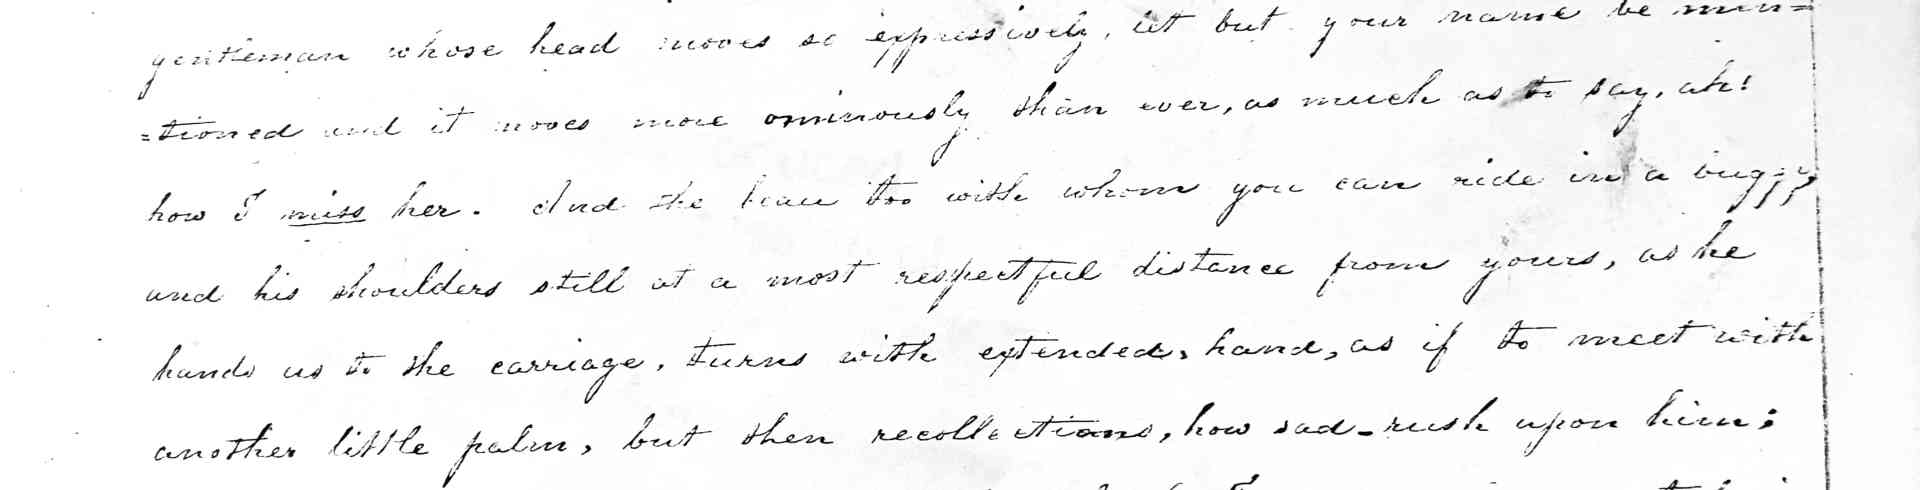 gentleman whose head moves so expressively, let but your name be men=
=tioned and it moves more ominously than ever, as much as to say, ah!
how I miss her. And the beau too with whom you can ride in a buggy
and his shoulders still at a most respectful distance from yours, as he
hands us to the carriage, turns with extended, hand, as if to meet with
another little palm, but then recollections, how sad - rush upon him;